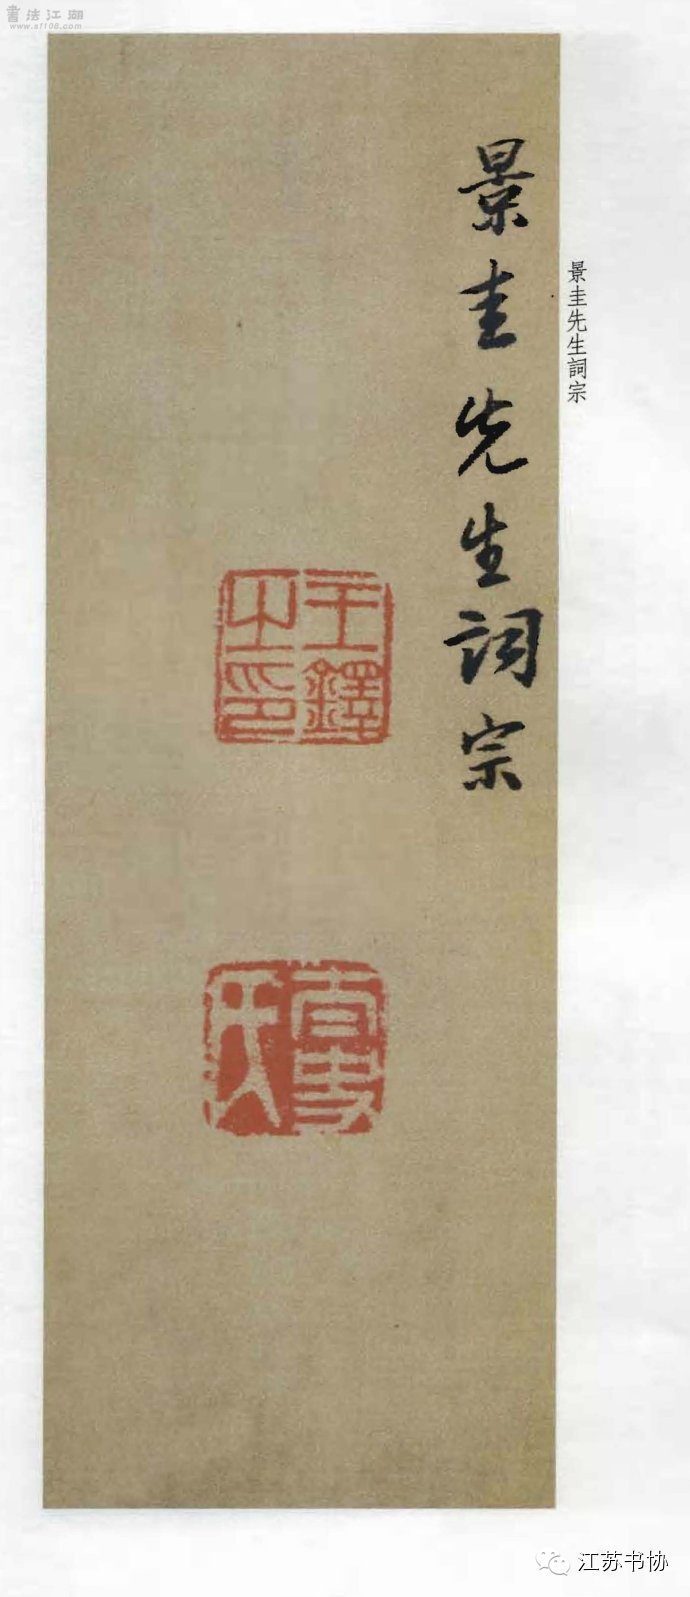 書法江湖
www.sf108.com
景圭先生詞宗
景圭先生詞宗
王鐸之印
江苏书协